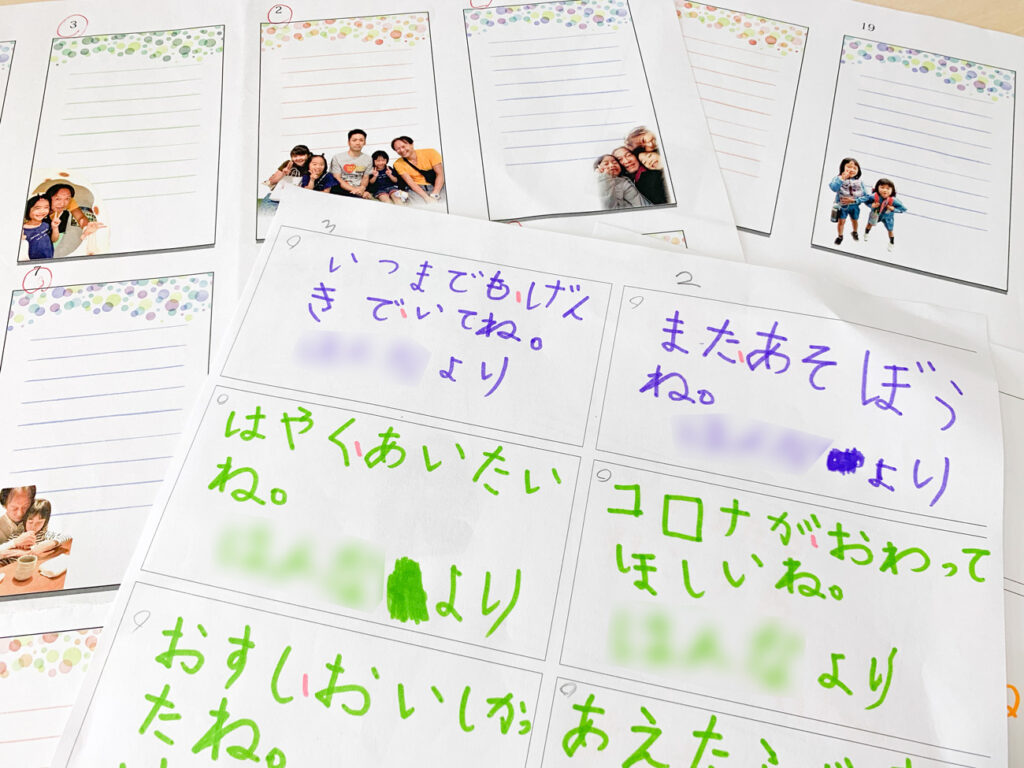 3
2
19
7
3
いつまでもげん
きでいてね。
より
2
またあそぼう
ね。
より
はやくあいたい
ね。
より
コロナがおわって
ほしいね。
より
おすしおいしかっ
たね。